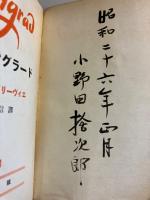 grad
ングラード
リーヴィエ
譯
昭和二十六年正月
小野田捨次郎